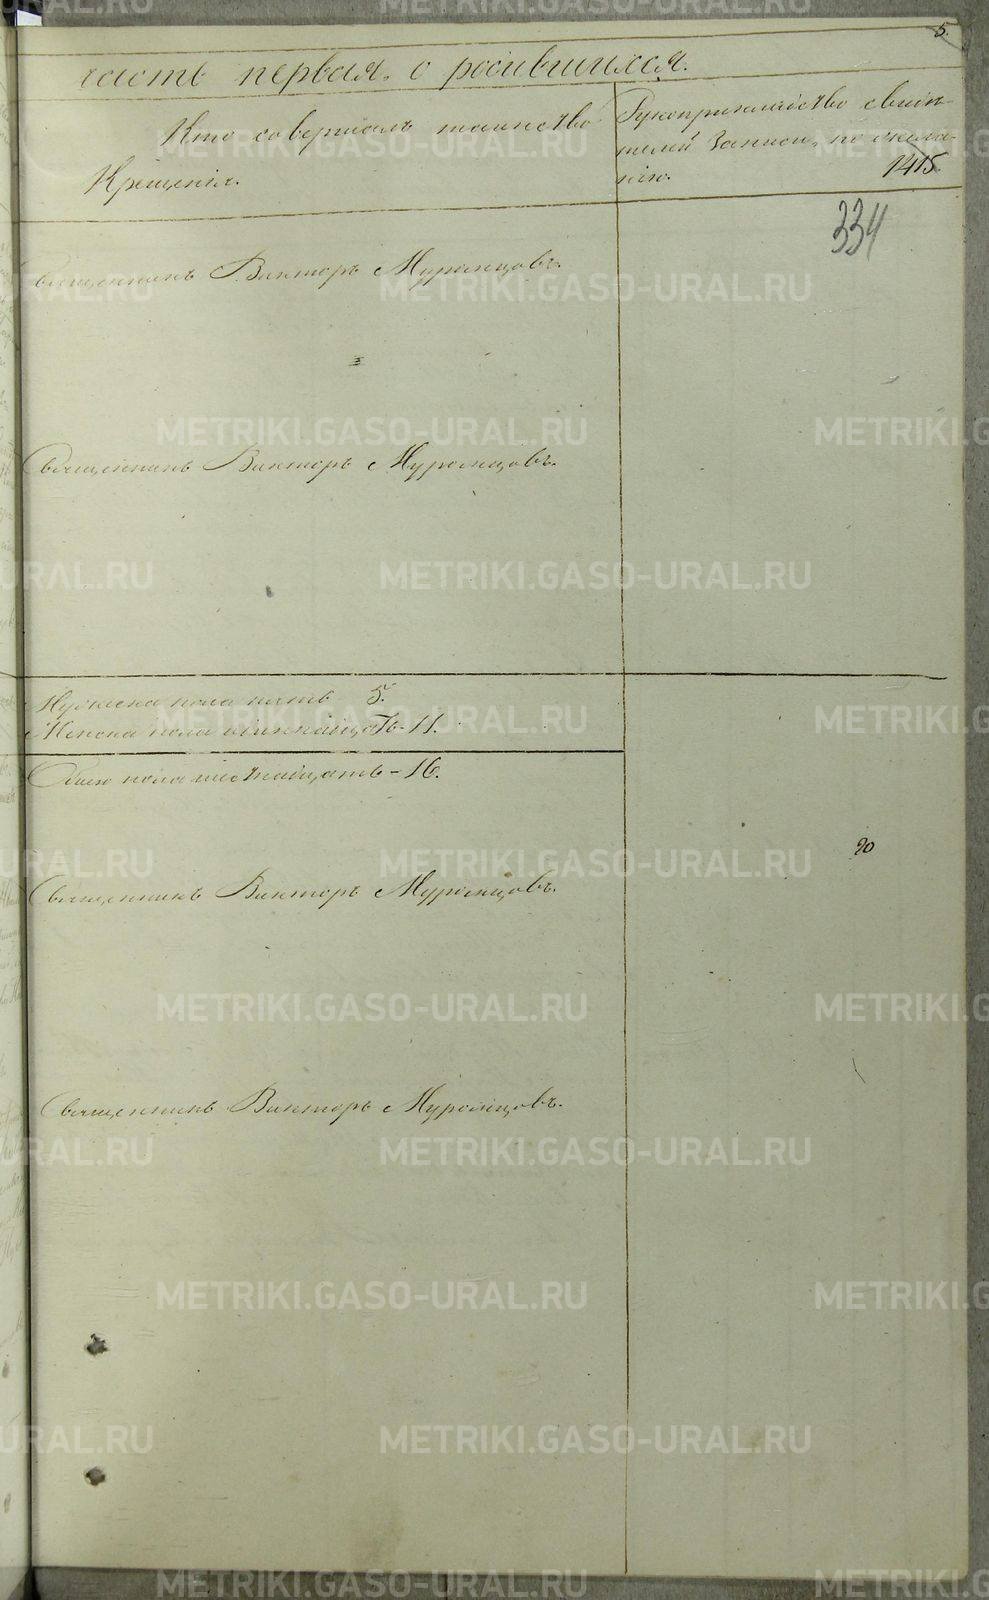 5.
часть первая, о родившихся.
Кто совершалъ таинство
Крещенія.
Рукоприкладство свидѣ-
телей записи, по жела-
нію.
1415.
334
Священникъ Викторъ Муромцовъ.
Священникъ Викторъ Муромцовъ.
Мужеска пола пять 5.
Женска пола одиннадцать - 11.
Обоего пола шестнадцать - 16.
20
Священникъ Викторъ Муромцовъ.
Священникъ Викторъ Муромцовъ.
METRIKI.GASO-URAL.RU